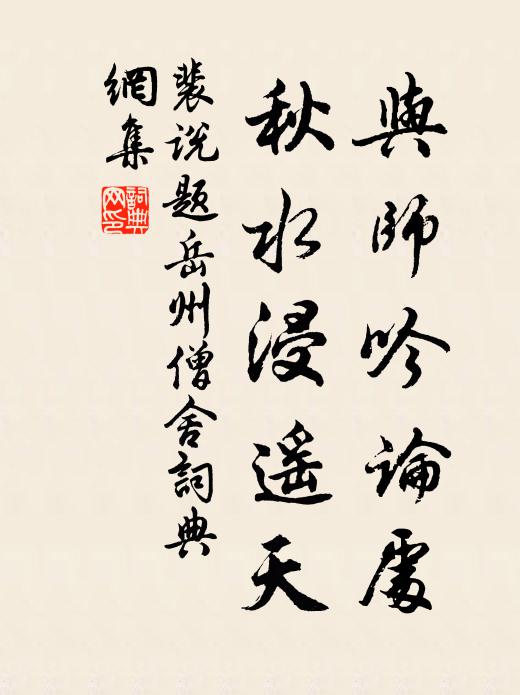 與師吟論處
秋水浸遥天
裴说題岳州僧舍詞典
網集
詞典網印